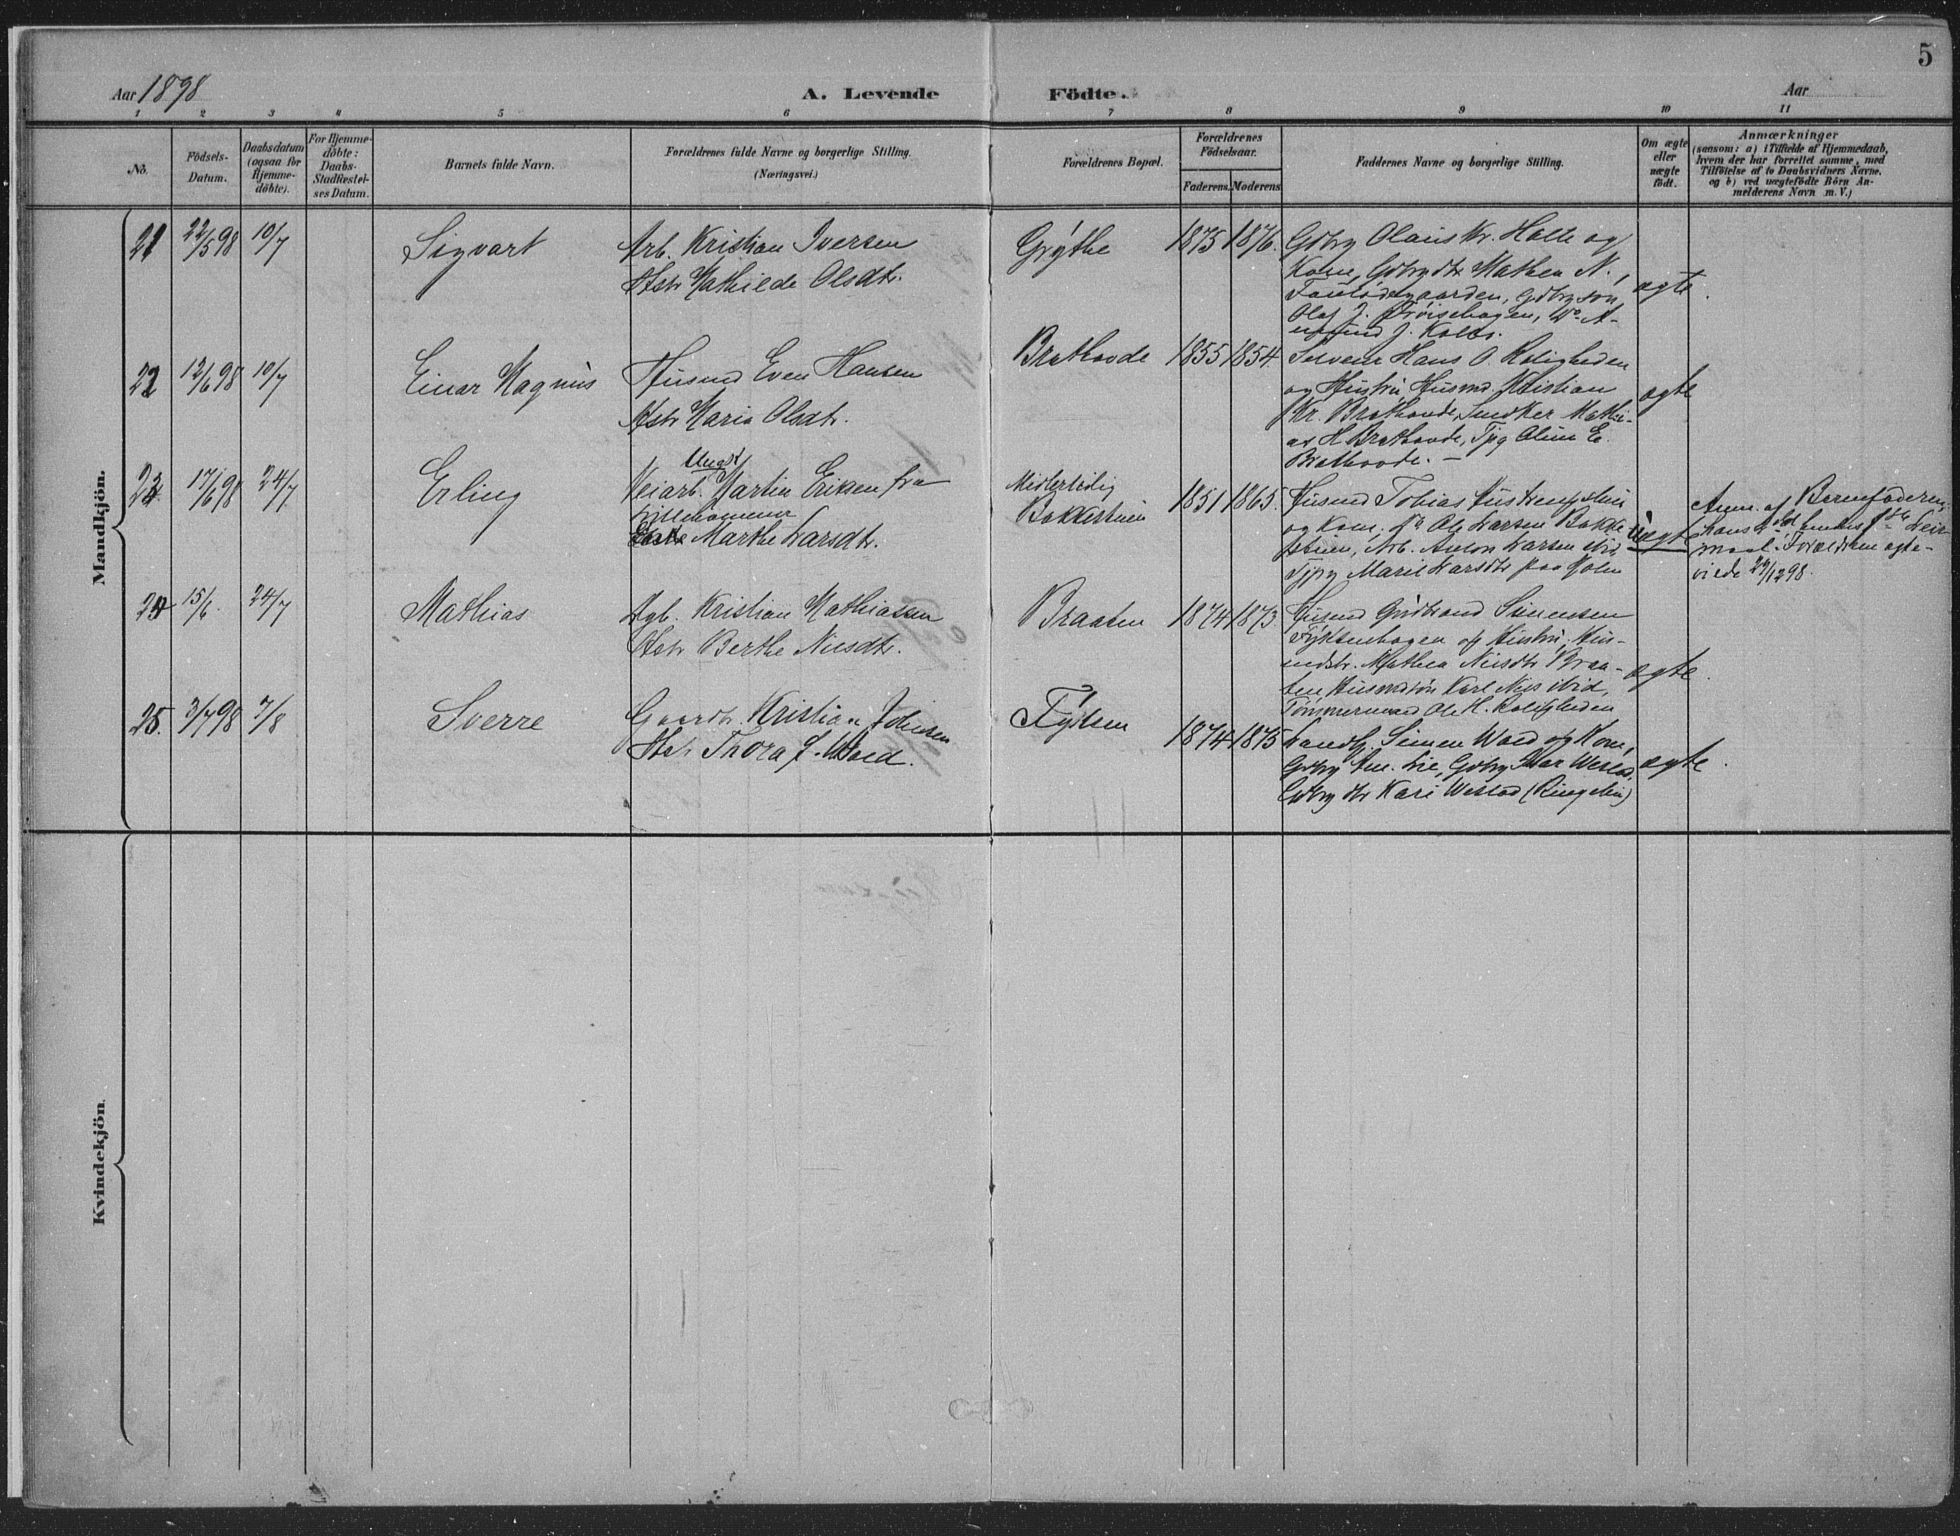 5
Aar 1898
A. Levende Födte.
Aar
1 2 3 4 5 6 7 8 9 10 11
No.
Födsels-
Datum.
Daabsdatum
(ogsaa for
Hjemme-
döbte).
For Hjemme-
döbte:
Daabs-
Stadfæstel-
ses Datum.
Barnets fulde Navn.
Forældrenes fulde Navne og borgerlige Stilling.
(Næringsvei.)
Forældrenes Bopæl.
Forældrenes
Födselsaar.
Faderens. Moderens.
Faddernes Navne og borgerlige Stilling.
Om ægte
eller
uægte
födt.
Anmærkninger
(saasom: a) i Tilfælde af Hjemmedaab,
hvem der har forrettet samme, med
Tilföielse af to Daabsvidners Navne,
og b) ved uægtefödte Börn An-
melderens Navn m. V.)
Mandkjön.
21 22/5 98 10/7 Sigvart
Arb. Kristian Iversen
Hstr Mathilde Olsdtr.
Grythe 1875 1876.
Gdbrg Olaus Kr. Holte og
Kone, Gdbrgdtr Mathea N.
Gdbrgsøn
Olaf J.
J. Kolbs.
ægte.
22 12/6 98 10/7 Einar Magnus
Husmd Even Hansen
Hstr Maria Olsdtr.
Brathovde 1855 1854.
Selveier Hans O. Roligheden
og Hustru, Husmd. Kristian
Kr. Brathovde, Snedker Mathi-
as H. Brathovde, Tjpg Oline E.
Brathovde. —
ægte
23 17/6 98 24/7 Erling
Ungk
Veiarb. Martin Eriksen fra
Lillehammer
Marthe Larsdtr.
Midlertidig
Bakkestuen 1851 1865.
Husmd Tobias
og Kone. Ole Larsen Bakke-
stuen, Arb. Anton Larsen ibid,
Tjpg Marit Larsdtr paa
Uægte
Anm. af Barnefaderen,
hans hendes Leier-
maal. Forældrene ægte-
viede 29/12 98.
24 15/6. 24/7 Mathias
Kristian Mathiasen
Hstr Berthe Nilsdtr.
Braaten 1874 1873.
Husmd Gudbrand Simensen
og Hustru, Hus-
mdstr. Mathea Nilsdtr Braa-
ten Husmdsøn Karl Nils ibid,
Tømmermand Ole H. Roligheden
ægte.
25. 3/7 98 7/8 Sverre
Gaardbr. Kristian Johnsen
Hstr Thora J. Wold.
Fydsen 1874 1875
Landh. Simen Wold og Kone,
Gdbrg Ane. Lie, Gdbrg Ivar Westad,
Gdbrg dtr Kari Westad (Ringebu)
ægte.
Kvindekjön.